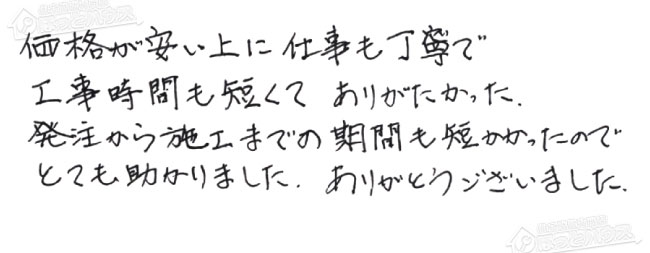 価格が安い上に仕事も丁寧で
工事時間も短くて ありがたかった.
発注から施工までの期間も短かかったので
とても助かりました. ありがとうございました.